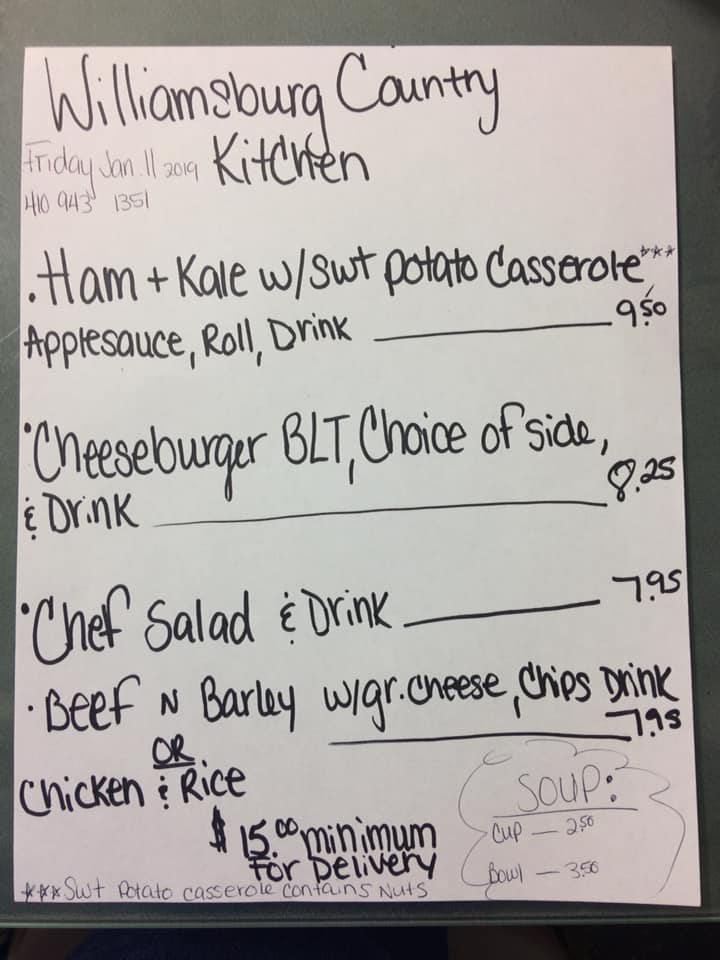 Williamsburg Country
Kitchen
Friday Jan. 11 2019
410 943 1351
. Ham + Kale w/swt potato Casserole***
Applesauce, Roll, Drink 9.50
• Cheeseburger BLT, Choice of side,
& Drink 8.25
• Chef Salad & Drink 7.95
• Beef N Barley w/gr. cheese, Chips Drink
7.95
OR
Chicken & Rice
$15.00 minimum
For Delivery
SOUP:
Cup — 2.50
Bowl — 3.50
***Swt Potato casserole contains Nuts